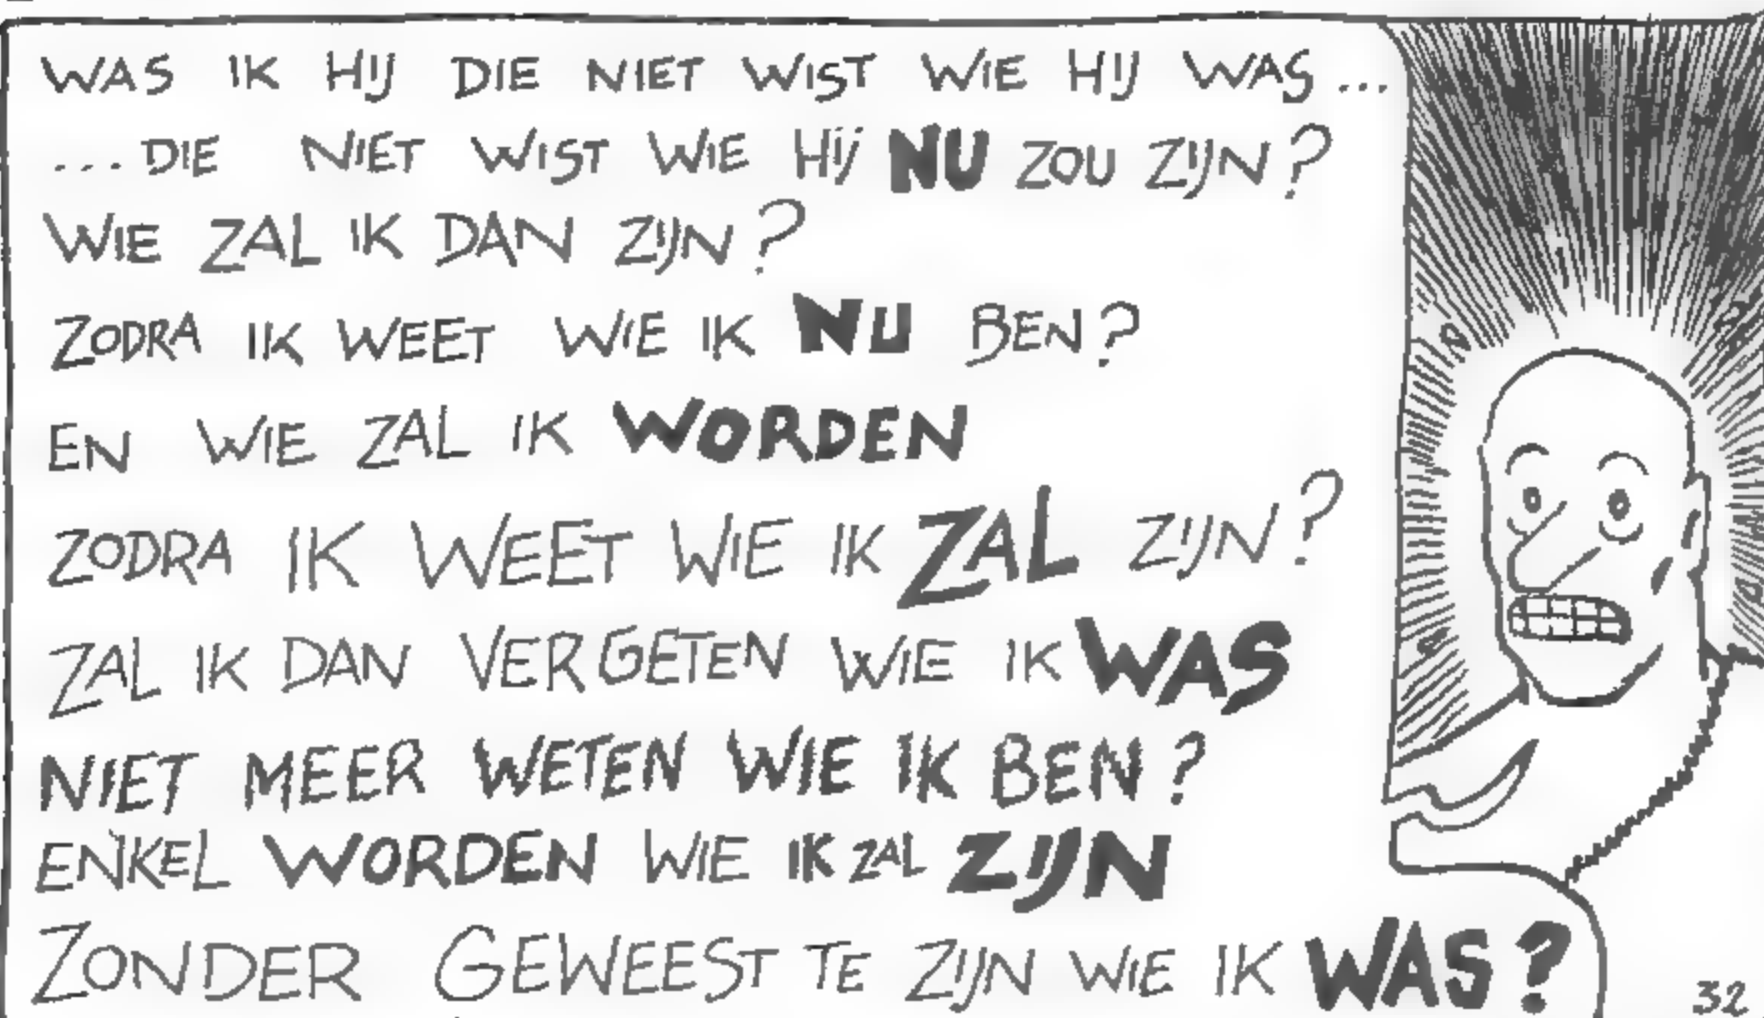 WAS IK HIJ DIE NIET WIST WIE HIJ WAS...
...DIE NIET WIST WIE HIJ NU ZOU ZIJN?
WIE ZAL IK DAN ZIJN?
ZODRA IK WEET WIE IK NU BEN?
EN WIE ZAL IK WORDEN
ZODRA IK WEET WIE IK ZAL ZIJN?
ZAL IK DAN VERGETEN WIE IK WAS
NIET MEER WETEN WIE IK BEN?
ENKEL WORDEN WIE IK ZAL ZIJN
ZONDER GEWEEST TE ZIJN WIE IK WAS?
32